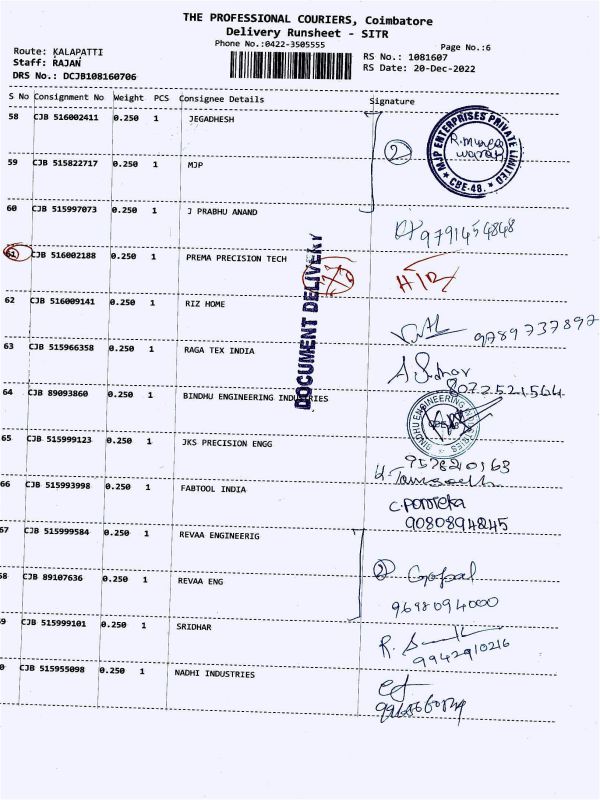 THE PROFESSIONAL COURIERS, Coimbatore
Delivery Runsheet - SITR
Phone No.:0422-3505555
Page No.:6
Route: KALAPATTI
Staff: RAJAN
DRS No.: DCJB108160706
RS No.: 1081607
RS Date: 20-Dec-2022
S No Consignment No Weight PCS Consignee Details Signature
58 CJB 516002411 0.250 1 JEGADHESH
MJP ENTERPRISES PRIVATE LIMITED
CBE-48.
2
59 CJB 515822717 0.250 1 MJP
60 CJB 515997073 0.250 1 J PRABHU ANAND
9791454848
61 CJB 516002188 0.250 1 PREMA PRECISION TECH
DOCUMENT DELIVERY
62 CJB 516009141 0.250 1 RIZ HOME
9789737892
63 CJB 515966358 0.250 1 RAGA TEX INDIA
A. Sridhar
8072521564
64 CJB 89093860 0.250 1 BINDHU ENGINEERING INDUSTRIES
BINDHU ENGINEERING
65 CJB 515999123 0.250 1 JKS PRECISION ENGG
66 CJB 515993998 0.250 1 FABTOOL INDIA
9080894845
67 CJB 515999584 0.250 1 REVAA ENGINEERIG
2 Gopal
58 CJB 89107636 0.250 1 REVAA ENG
9698094000
59 CJB 515999101 0.250 1 SRIDHAR
9942910216
0 CJB 515955098 0.250 1 NADHI INDUSTRIES